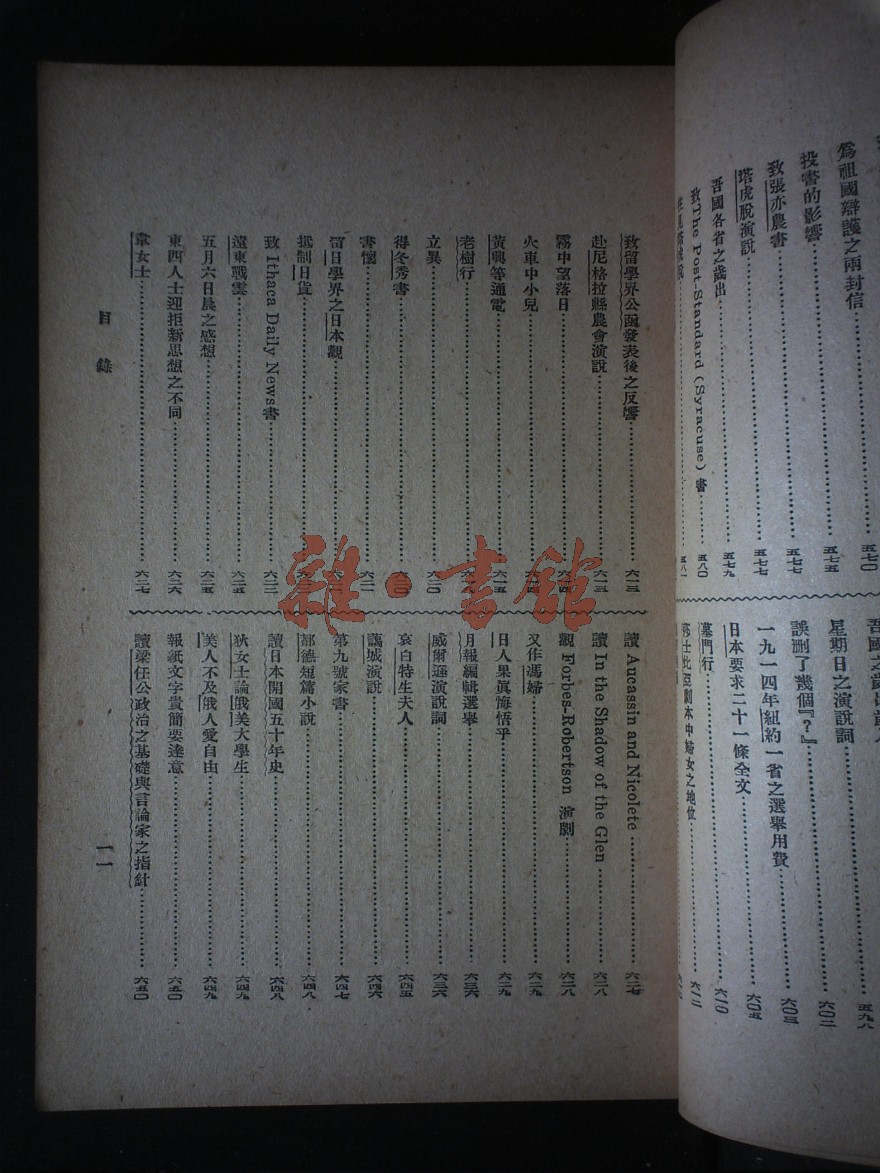 爲祖國辯護之兩封信……五七〇
投書的影響……五七五
致張亦農書……五七七
塔虎脫演說……五七七
吾國各省之歲出……五七九
致The Post-Standard (Syracuse) 書……五八〇
五八一
星期日之演說詞……五九八
誤删了幾個『？』……六〇二
一九一四年紐約一省之選舉用費……六〇三
日本要求二十一條全文……六〇五
墓門行……六一〇
莎士比亞劇本中婦女之地位……六一二
致留學界公函發表後之反響……六一三
赴尼格拉縣農會演說……六一三
霧中望落日……六一四
火車中小兒……六一四
黃興等通電……六一五
老樹行
立異……六二〇
得冬秀書……六二〇
書懷……六二一
留日學界之日本觀
抵制日貨
致 Ithaca Daily News書……六二三
遠東戰雲……六二五
五月六日晨之感想……六二五
東西人士迎拒新思想之不同……六二六
韋女士……六二七
讀 Aucassin and Nicolete……六二七
讀 In the Shadow of the Glen……六二八
觀 Forbes-Robertson 演劇……六二八
又作馮婦……六二九
日人果眞悔悟乎……六二九
月報編輯選舉……六三六
威爾遜演說詞……六三六
哀白特生夫人……六四五
藹城演說……六四六
第九號家書……六四七
都德短篇小說……六四八
讀日本開國五十年史……六四八
狄女士論俄美大學生……六四九
美人不及俄人愛自由……六四九
報紙文字貴簡要達意……六五〇
讀梁任公政治之基礎與言論家之指針……六五〇
目錄
一一
雜·書館